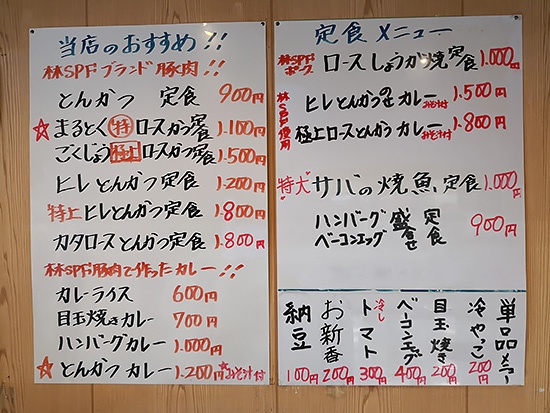 当店のおすすめ!!
林SPFブランド豚肉!!
とんかつ 定食 900円
☆まるとく特ロースかつ定食 1.100円
ごくじょう極上ロースかつ定食 1.500円
ヒレとんかつ定食 1.200円
特上ヒレとんかつ定食 1.800円
カタロースとんかつ定食 1.800円
林SPF豚肉で作ったカレー!!
カレーライス 600円
目玉焼きカレー 700円
ハンバーグカレー 1.000円
☆とんかつカレー 1.200円 ☆みそ汁付
定食メニュー
林SPFポーク ロースしょうが焼定食 1.000円
林SPF使用
ヒレとんかつのせカレーみそ汁付 1.500円
極上ロースとんかつカレーみそ汁付 1.800円
特大サバの焼魚定食 1.000円
ハンバーグ ベーコンエッグ 盛合せ 定食 900円
単品メニュー
冷やっこ 200円
目玉焼き 200円
ベーコンエッグ 400円
冷しトマト 300円
お新香 200円
納豆 100円